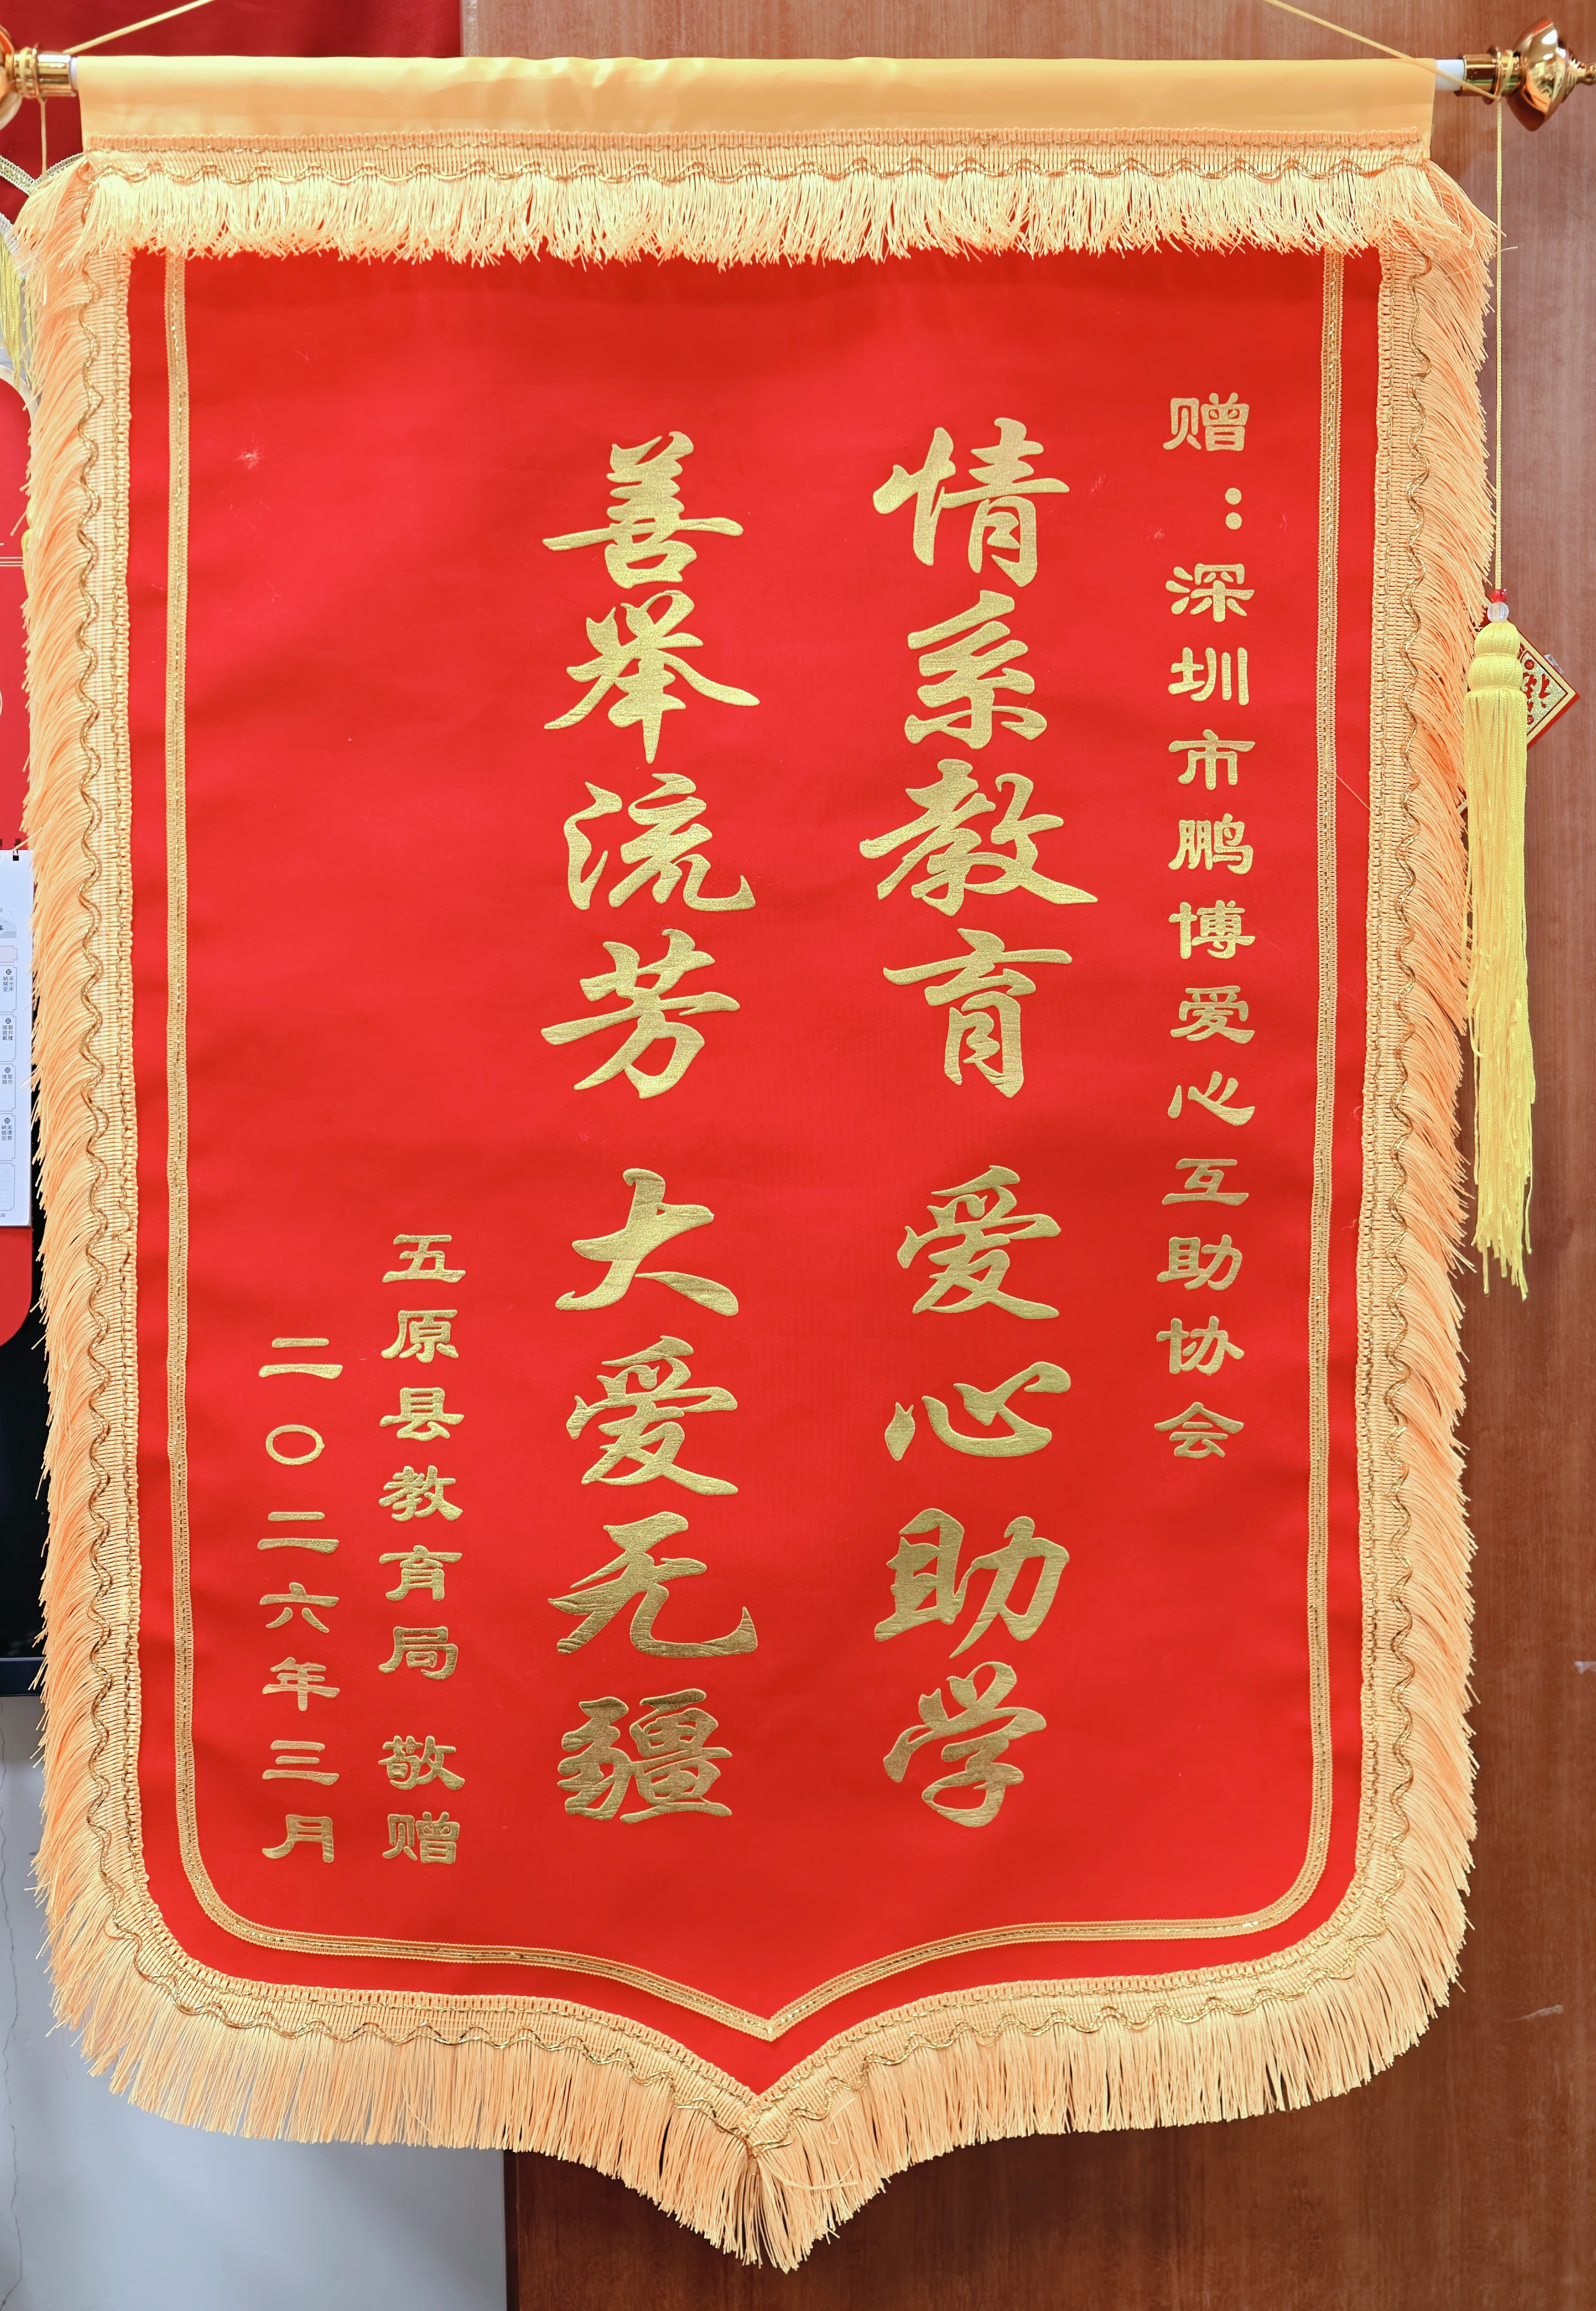 赠：深圳市鹏博爱心互助协会
情系教育 爱心助学
善举流芳 大爱无疆
五原县教育局 敬赠
二〇二六年三月